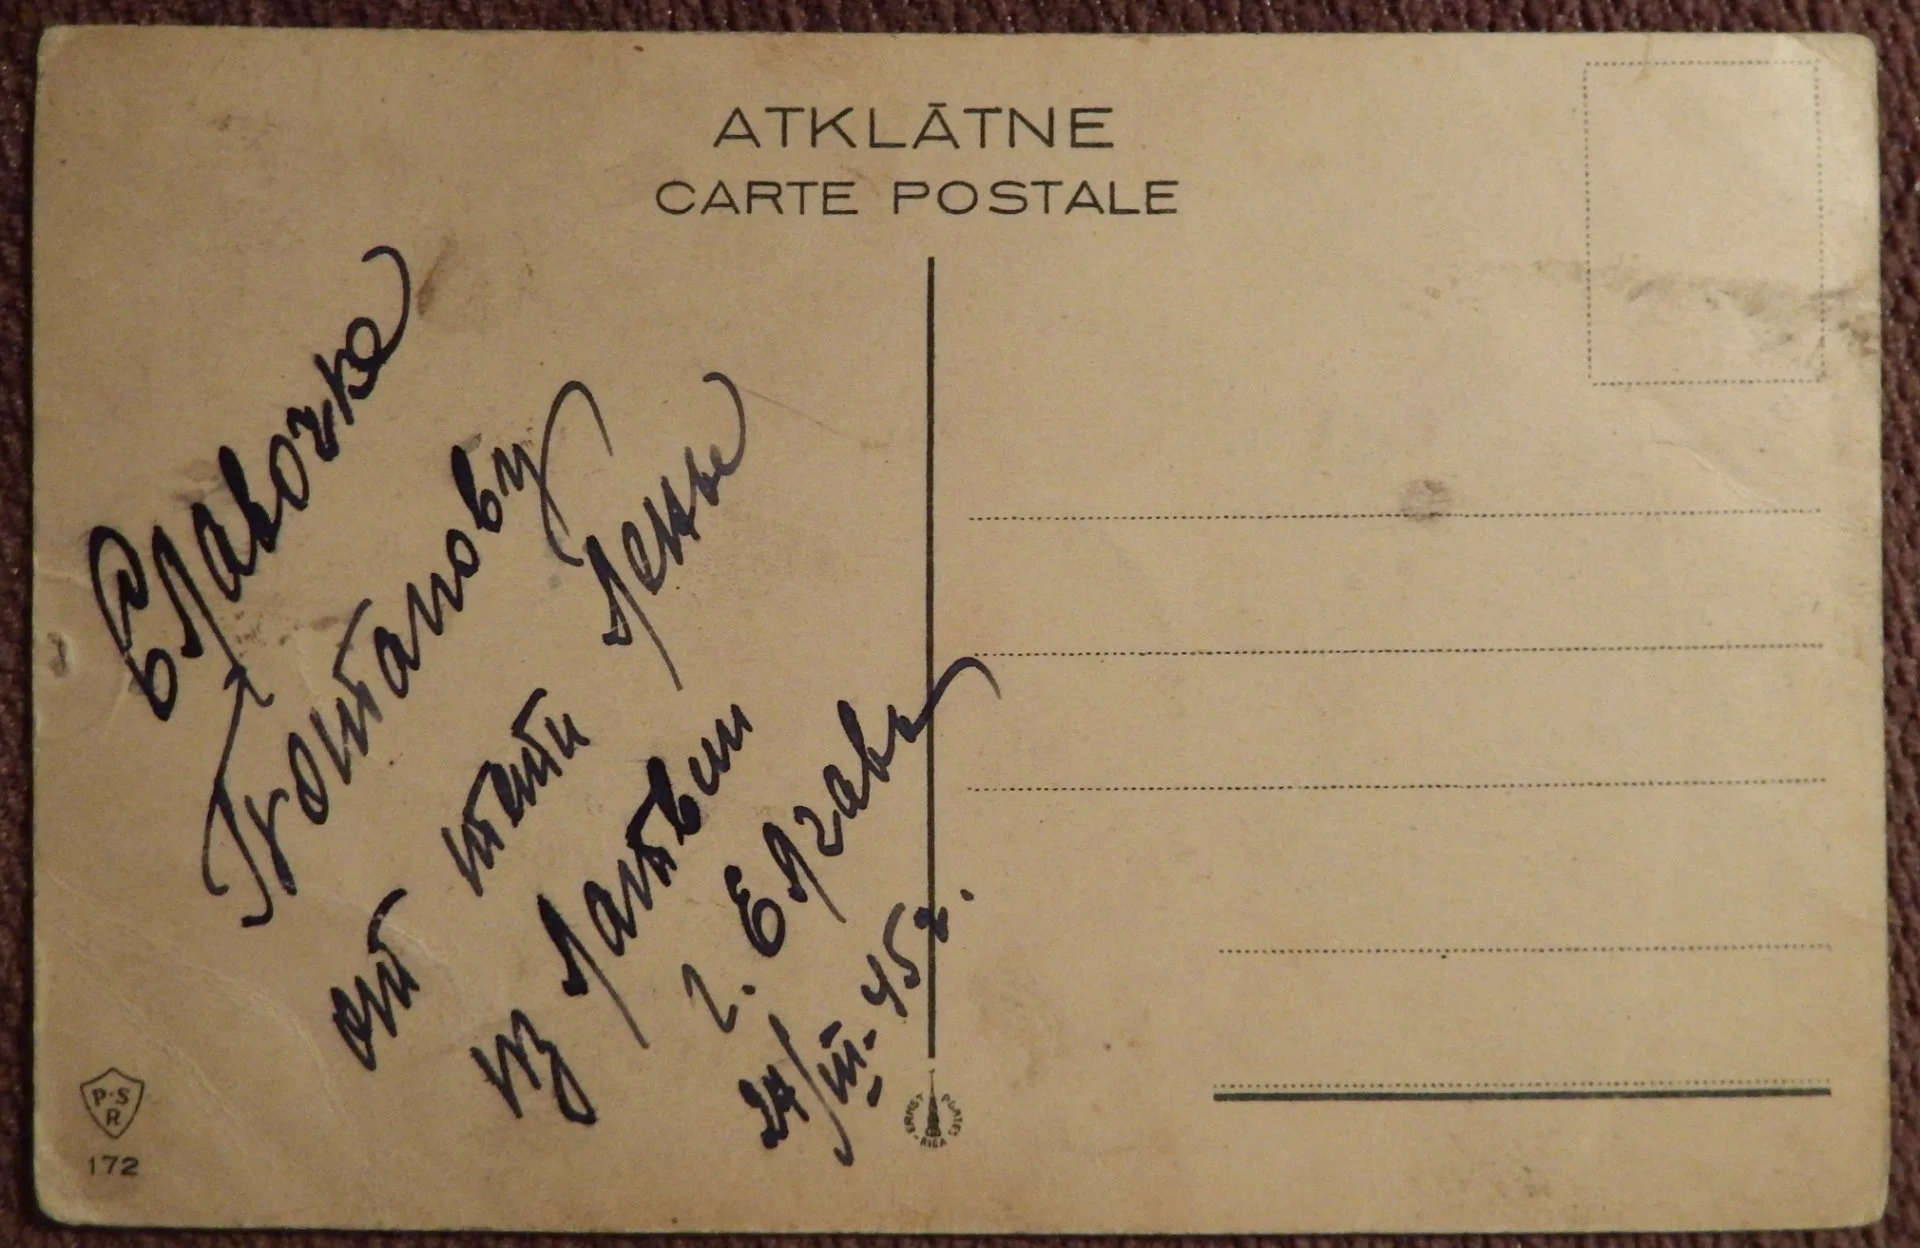 ATKLĀTNE
CARTE POSTALE
Славочке
от тети Лене
из Латвии
г. Елгавы
24/III-45г.
P·S
R
172
ERNST PLATES
RIGA